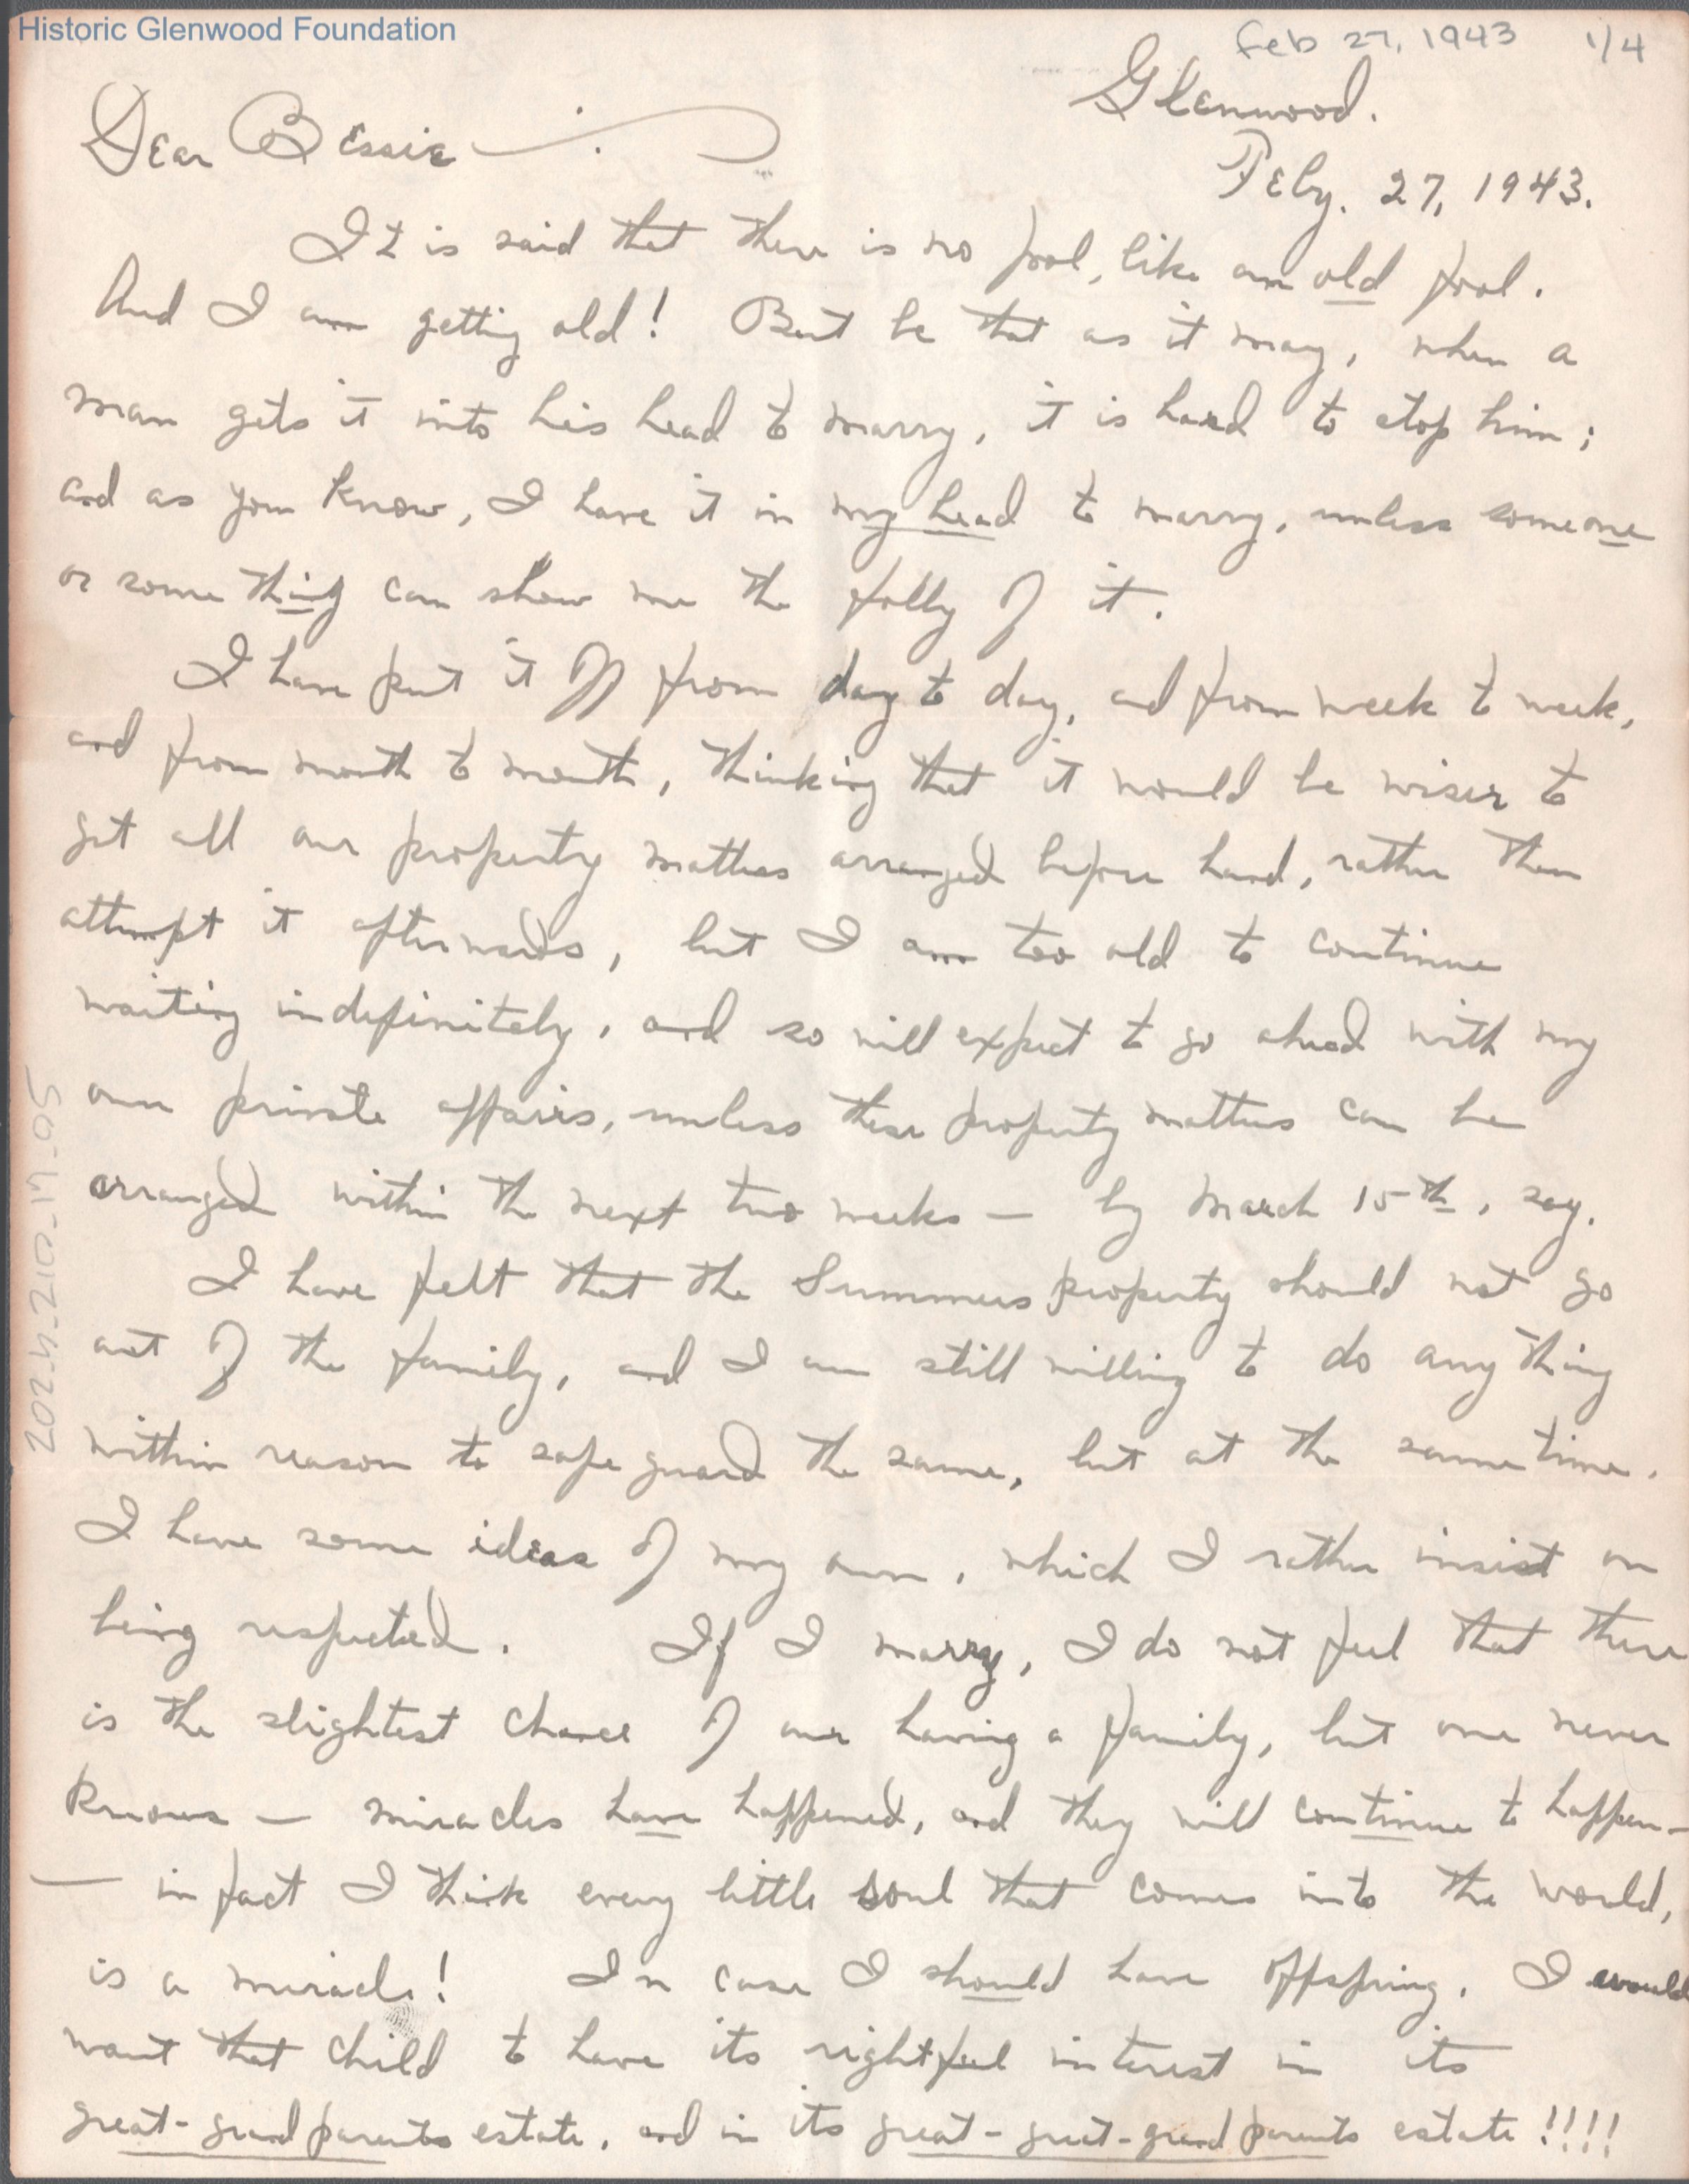 Historic Glenwood Foundation
Feb 27, 1943 1/4
Glenwood.
Dear Bessie —
Feby. 27, 1943.
It is said that there is no fool, like an old fool.
And I am getting old! But be that as it may, when a
man gets it into his head to marry, it is hard to stop him;
and as you know, I have it in my head to marry, unless someone
or some thing can show me the folly of it.
I have put it off from day to day, and from week to week,
and from month to month, thinking that it would be wiser to
get all our property matters arranged before hand, rather than
attempt it afterwards, but I am too old to continue
waiting indefinitely, and so will expect to go ahead with my
own private affairs, unless these property matters can be
arranged within the next two weeks — by March 15th, say.
I have felt that the Summers property should not go
out of the family, and I am still willing to do any thing
within reason to safe guard the same, but at the same time,
I have some ideas of my own, which I rather insist on
being respected. If I marry, I do not feel that there
is the slightest chance of our having a family, but one never
knows — miracles have happened, and they will continue to happen —
— in fact I think every little soul that comes into the world,
is a miracle! In case I should have offspring, I would
want that child to have its rightful interest in its
great-grand parents estate, and in its great-great-grand parents estate!!!!
2024_210_17_05